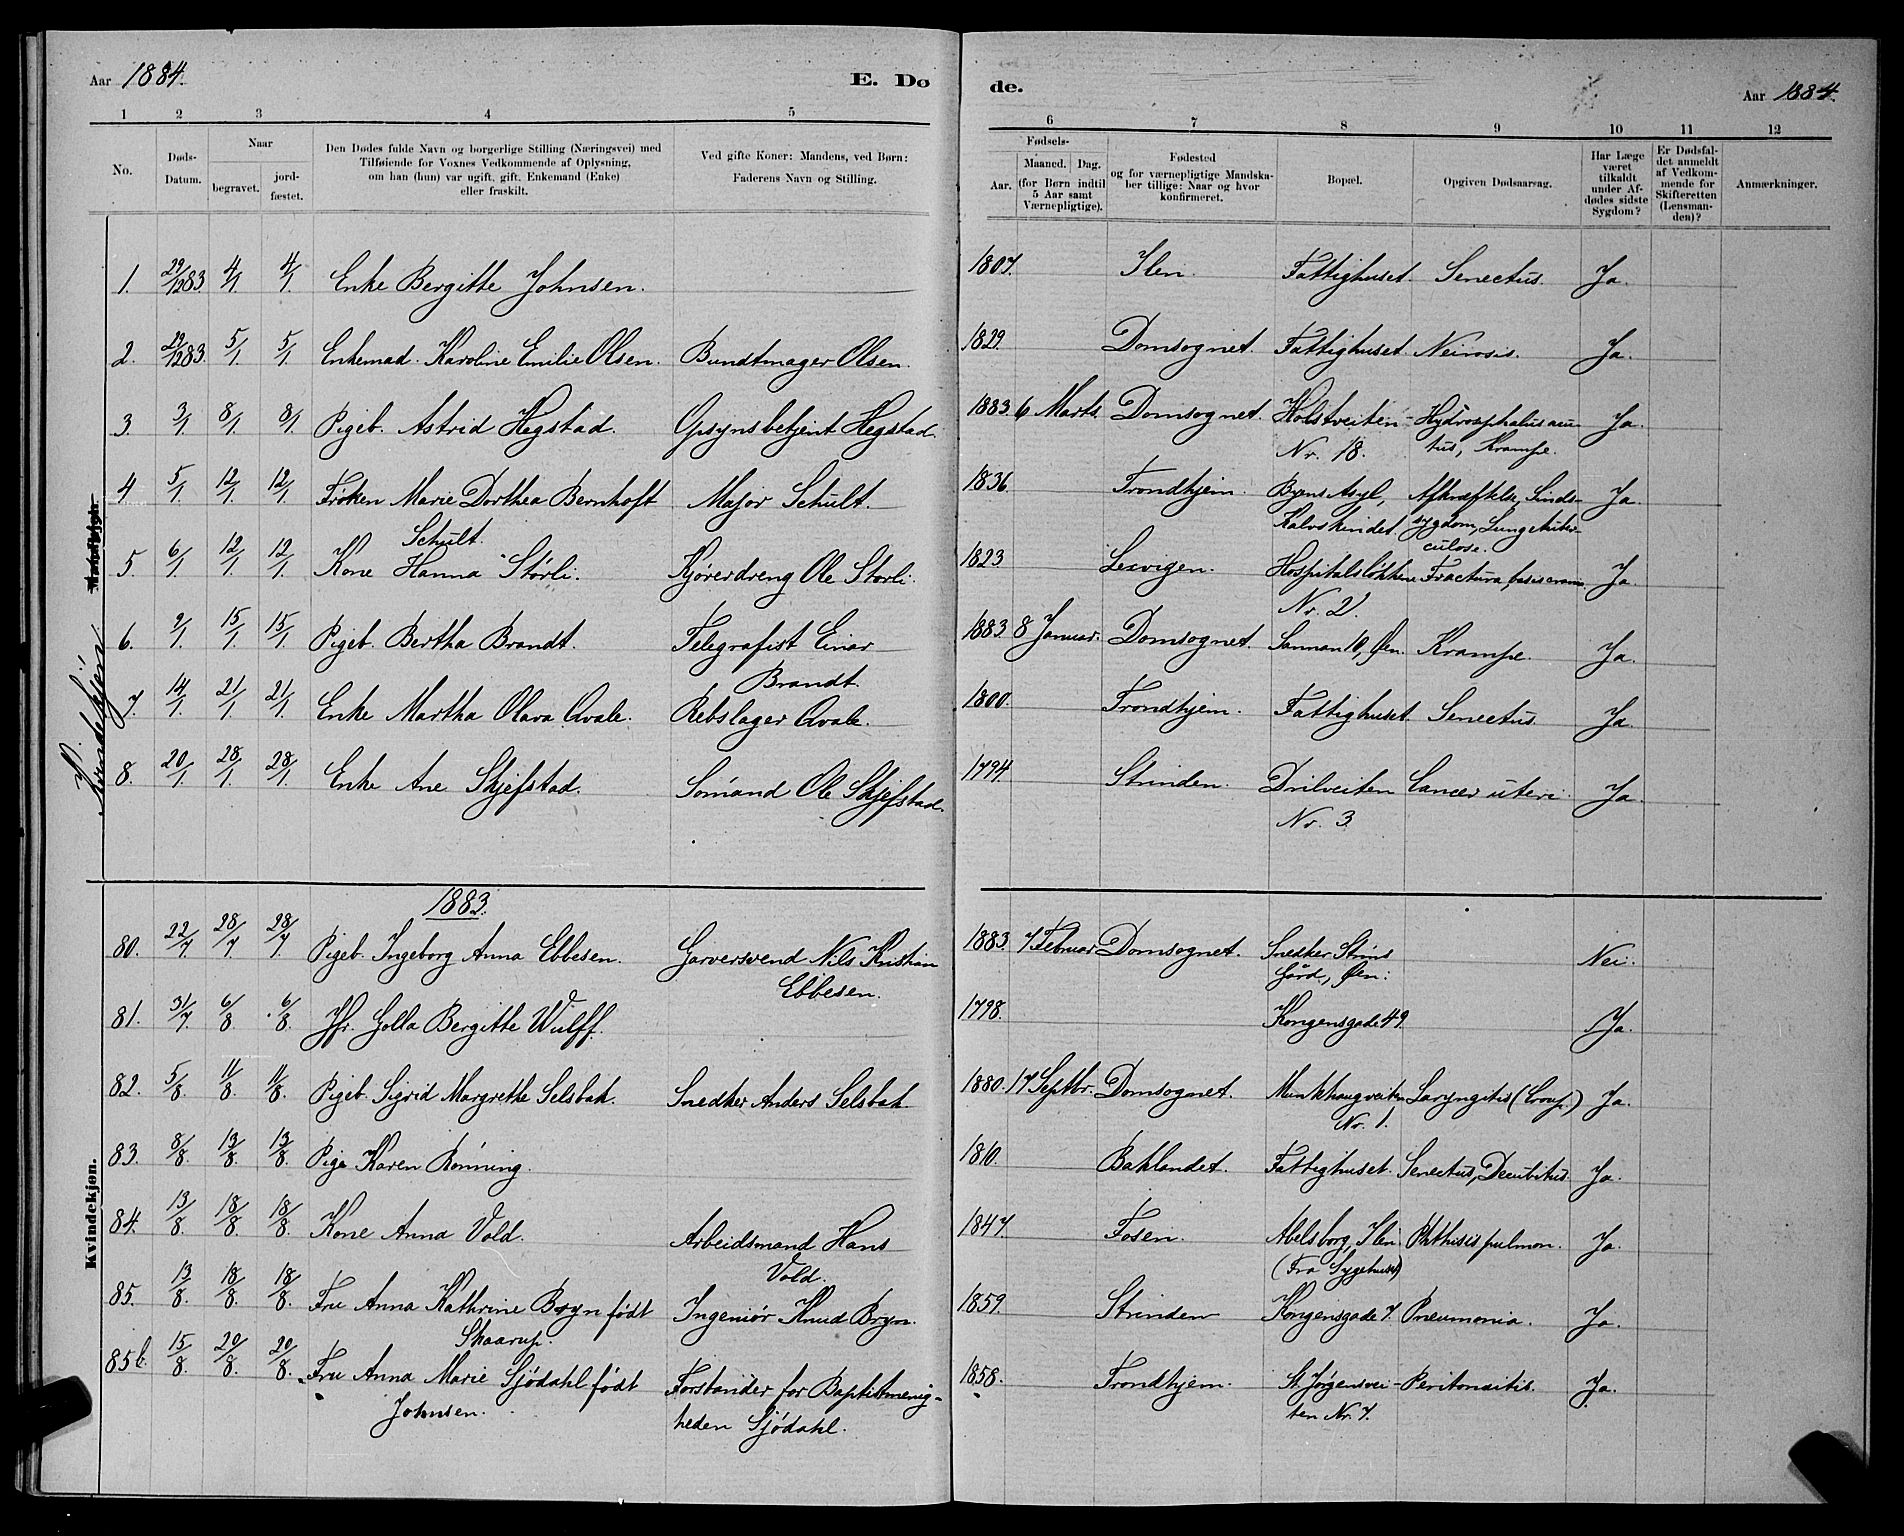 Aar 1884. E. Dø de. Aar 1884.
1 2 3 4 5 6 7 8 9 10 11 12
No.
Døds-
Datum.
Naar
begravet.
jord-
fæstet.
Den Dødes fulde Navn og borgerlige Stilling (Næringsvei) med
Tilføiende for Voxnes Vedkommende af Oplysning,
om han (hun) var ugift, gift, Enkemand (Enke)
eller fraskilt.
Ved gifte Koner: Mandens, ved Børn:
Faderens Navn og Stilling.
Fødsels-
Aar.
Maaned. Dag.
(for Børn indtil
5 Aar samt
Værnepligtige).
Fødested
og for værnepligtige Mandska-
ber tillige: Naar og hvor
konfirmeret.
Bopæl.
Opgiven Dødsaarsag.
Har Læge
været
tilkaldt
under Af-
dødes sidste
Sygdom?
Er Dødsfal-
det anmeldt
af Vedkom-
mende for
Skifteretten
(Lensman-
den)?
Anmærkninger.
Mandkjøn.
Kvindekjøn
1. 29/12 83. 4/1 4/1 Enke Bergitte Johnsen. 1807. Ilen. Fattighuset. Senectus. Ja.
2. 29/12 83. 5/1 5/1 Enkemad. Karoline Emilie Olsen. Bundtmager Olsen. 1829. Domsognet. Fattighuset. Neirosis. Ja.
3. 3/1 8/1 8/1 Pigeb. Astrid Hegstad. Opsynsbetjent Hegstad. 1883 6 Marts. Domsognet. Holstveiten Hydrocephalus acu-
Nr. 18. tus, Krampe. Ja.
4 5/1 12/1 12/1 Frøken Marie Dorthea Bernhoft Major Schult. 1836. Trondhjem. Byens Asyl, Afkræftelse, Sinds- Ja.
Schult. Kalvskindet. sygdom, Lungetuber-
culose.
5. 6/1 12/1 12/1 Kone Hanna Störli. Kjörerdreng Ole Störli. 1823 Lexvigen. Hospitalsløkken Fractura basis cranii Ja.
Nr. 2.
6. 9/1 15/1 15/1 Pigeb. Bertha Brandt. Telegrafist Einar 1883 8 Januar. Domsognet. Sannan 10, Øen. Krampe. Ja.
Brandt.
7. 14/1 21/1 21/1 Enke Martha Olava Qvale. Rebslager Qvale. 1800. Trondhjem. Fattighuset. Senectus. Ja
8. 20/1 28/1 28/1 Enke Ane Skjefstad. Sömand Ole Skjefstad. 1794 Strinden. Drilveiten Cancer uteri. Ja.
Nr. 3.
1883.
Kvindekjøn.
80. 22/7 28/7 28/7 Pigeb. Ingeborg Anna Ebbesen. Garversvend Nils Kristian 1883. 7 Februar Domsognet. Snedker Ströms Nei.
Ebbesen. Gård, Øen.
81. 31/7. 6/8 6/8. Jfr. Golla Bergitte Wulff. 1798. Kongensgade 49. Ja.
82. 5/8 11/8 11/8. Pigeb. Sigrid Margrethe Selsbak. Snedker Anders Selsbak. 1880. 17 Septbr. Domsognet. Munkhaugveiten Laryngitis (Croup.) Ja.
Nr. 1.
83. 8/8. 13/8. 13/8. Pige Karen Rönning. 1810. Baklandet. Fattighuset. Senectus, Decubitus. Ja.
84. 13/8. 18/8. 18/8. Kone Anna Vold. Arbeidsmand Hans 1847. Fosen. Abelsborg, Ilen Phthisis pulmon. Ja.
Vold. (Fra Sygehuset)
85. 13/8. 18/8. 18/8. Fru Anna Kathrine Bryn født Ingeniör Knud Bryn. 1859. Strinden Kongensgade 7. Pneumonia. Ja.
Skaarup.
85b. 15/8. 20/8. 20/8. Fru Anna Marie Sjödahl født Forstander for Baptistmenig- 1858. Trondhjem. St. Jörgensvei- Peritonitis. Ja.
Johnsen. heden Sjödahl. ten Nr. 7.